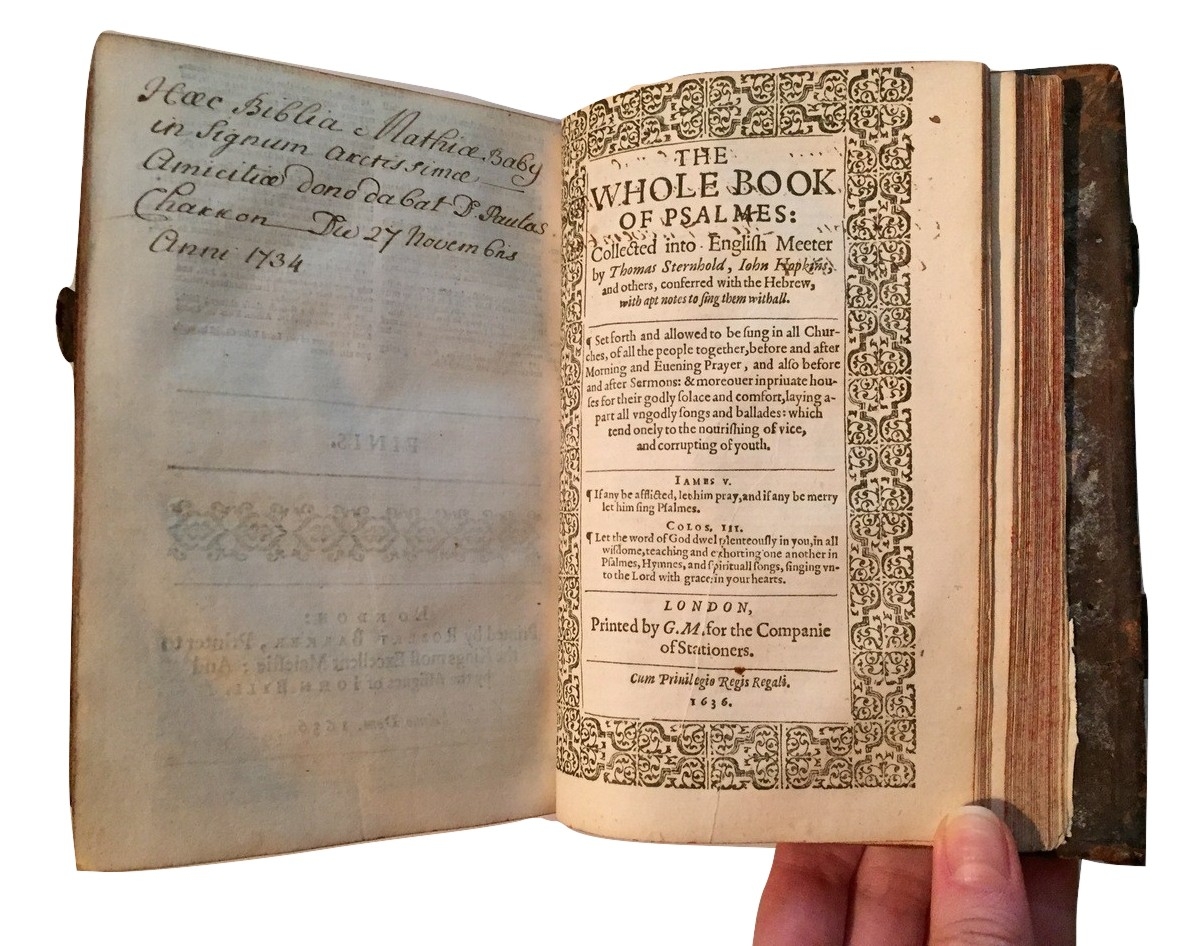 Hæc Biblia Mathiæ Baby
in Signum arctissimæ
Amicitiæ dono dabat D. Paulus
Charron Die 27 Novembris
Anni 1734
FINIS.
LONDON:
Printed by ROBERT BARKER, Printer to
the Kings most Excellent Majestie: And
by the Assignes of JOHN BILL.
Anno Dom. 1636
THE
WHOLE BOOK
OF PSALMES:
Collected into Engliſh Meeter
by Thomas Sternhold, Iohn Hopkins,
and others, conferred with the Hebrew,
with apt notes to ſing them withall.
¶ Set forth and allowed to be ſung in all Chur-
ches, of all the people together, before and after
Morning and Euening Prayer, and alſo before
and after Sermons: & moreouer in priuate hou-
ſes for their godly ſolace and comfort, laying a-
part all vngodly ſongs and ballades: which
tend onely to the nouriſhing of vice,
and corrupting of youth.
IAMES V.
¶ If any be afflicted, let him pray, and if any be merry
let him ſing Pſalmes.
COLOS. III.
¶ Let the word of God dwel plenteouſly in you, in all
wiſdome, teaching and exhorting one another in
Pſalmes, Hymnes, and ſpirituall ſongs, ſinging vn-
to the Lord with grace in your hearts.
LONDON,
Printed by G. M. for the Companie
of Stationers.
Cum Privilegio Regis Regali.
1636.